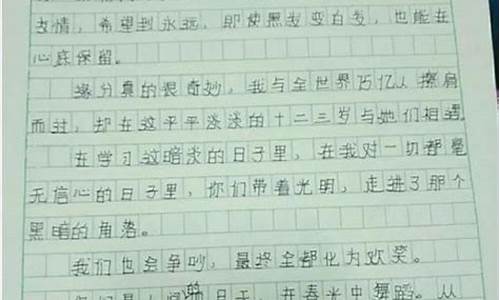 友情，希望到永远，即使黑发变白发，也能在
心底保留。
缘分真的很奇妙，我与全世界75亿人擦肩
而过，却在这平平淡淡的十二三岁与她们相遇
在学习这暗淡的日子里，在我对一切都毫
无信心的日子里，你们带着光明，走进了那个
黑暗的角落。
我们也会争吵，最终全都化为欢笑。
在春光中舞蹈。从